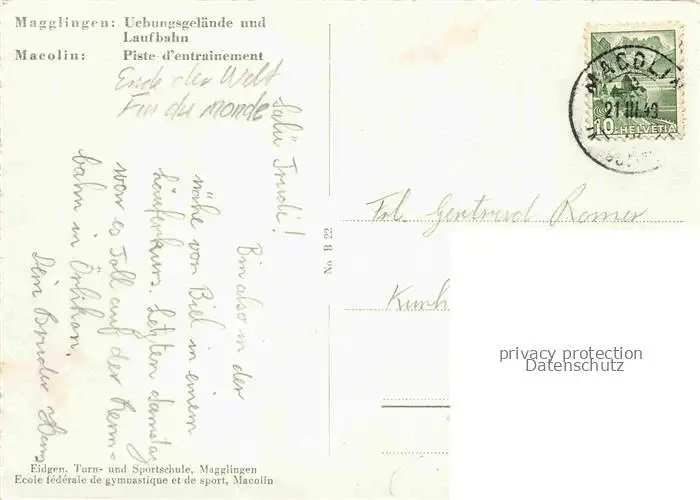 Magglingen: Uebungsgelände und
Laufbahn
Macolin: Piste d'entrainement
Ende der Welt
Fin du monde
Salü Trudi!
Bin also in der
nähe von Biel in einem
Läuferkurs. Letzten Samstag
war es Toll auf der Renn=
bahn in Örlikon.
Dein Bruder Hans
No. B 22
MACOLIN
21.III.49
10 HELVETIA
Frl. Gertrud Romer
privacy protection
Datenschutz
Eidgen. Turn- und Sportschule, Magglingen
Ecole fédérale de gymnastique et de sport, Macolin